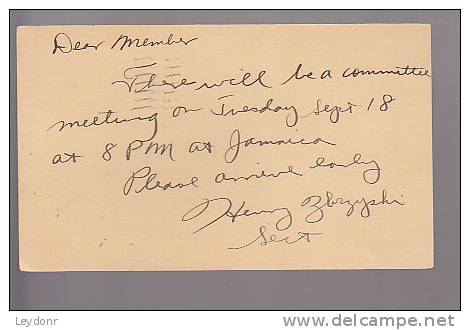 Dear Member
There will be a committee
meeting on Tuesday Sept 18
at 8 PM at Jamaica
Please arrive early
Henry
Sect
Leydonr
delcampe.net